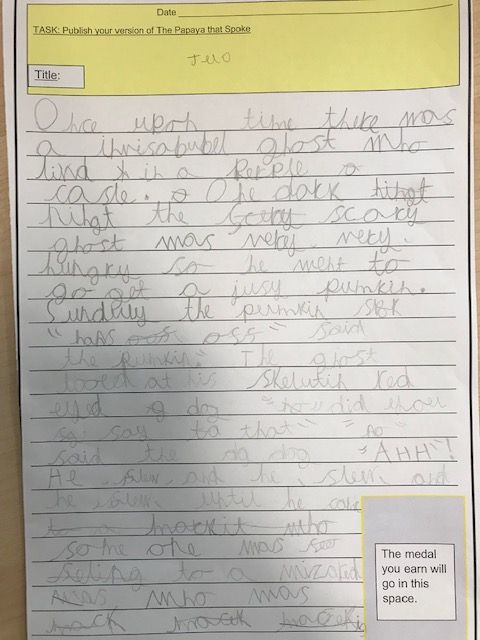 Date
TASK: Publish your version of The Papaya that Spoke
Title:
Once upon time there was
a inrisabubel ghost who
livd in a perple
casle. One dark hihgt
hihgt the scary
ghost was very very
hungry so he went to
go get a jusy pumkin.
Sundilly the pumkin
"hans off" said
the punkin." The ghost
looked at his skelutin red
eyed dog did you
say that" "no"
said the dog "AHH"!
He flew and he flew and
he flew until he came
to a markit who
some one was
to a mizored
who was
The medal
you earn will
go in this
space.